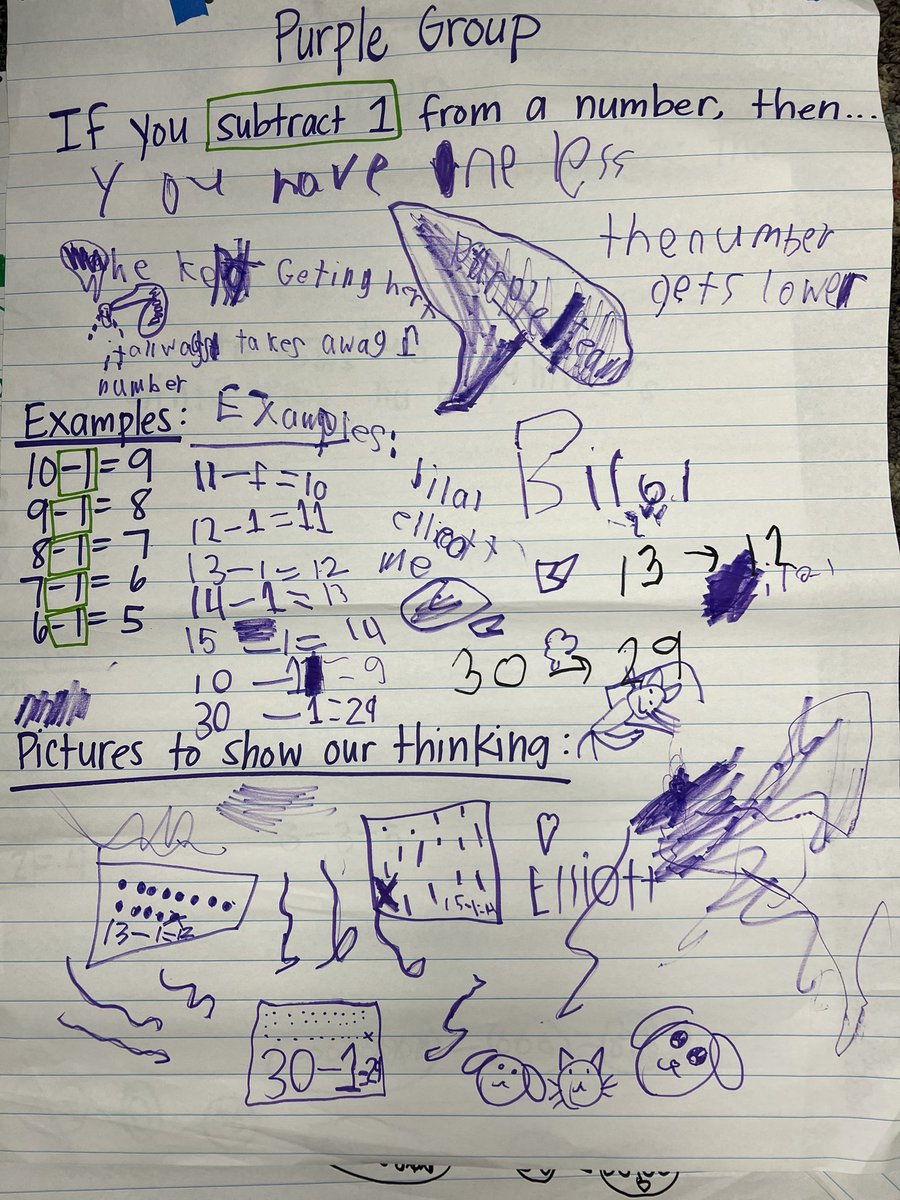 Purple Group
If you subtract 1 from a number, then...
You have one less
the number
gets lower
he Geting
it allways takes away 1
number
Examples: Examples:
10-1=9
9-1=8
8-1=7
7-1=6
6-1=5
11-1=10
12-1=11
13-1=12
14-1=13
15 -1= 14
10 -1 =9
30 -1=29
bilal
elliott
me
Bilal
13 → 12
30 → 29
Pictures to show our thinking:
13-1=12
15-1=14
Elliott
30-1=29